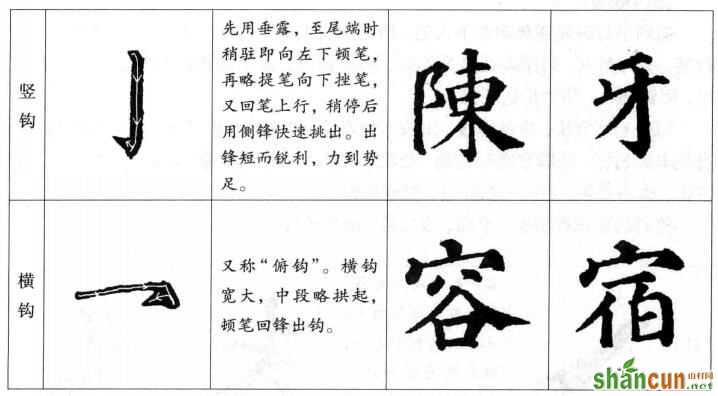 竖钩
先用垂露，至尾端时
稍驻即向左下顿笔，
再略提笔向下挫笔，
又回笔上行，稍停后
用侧锋快速挑出。出
锋短而锐利，力到势
足。
陳 牙
横钩
又称“俯钩”。横钩
宽大，中段略拱起，
顿笔回锋出钩。
容 宿
shancun 山村网
.net